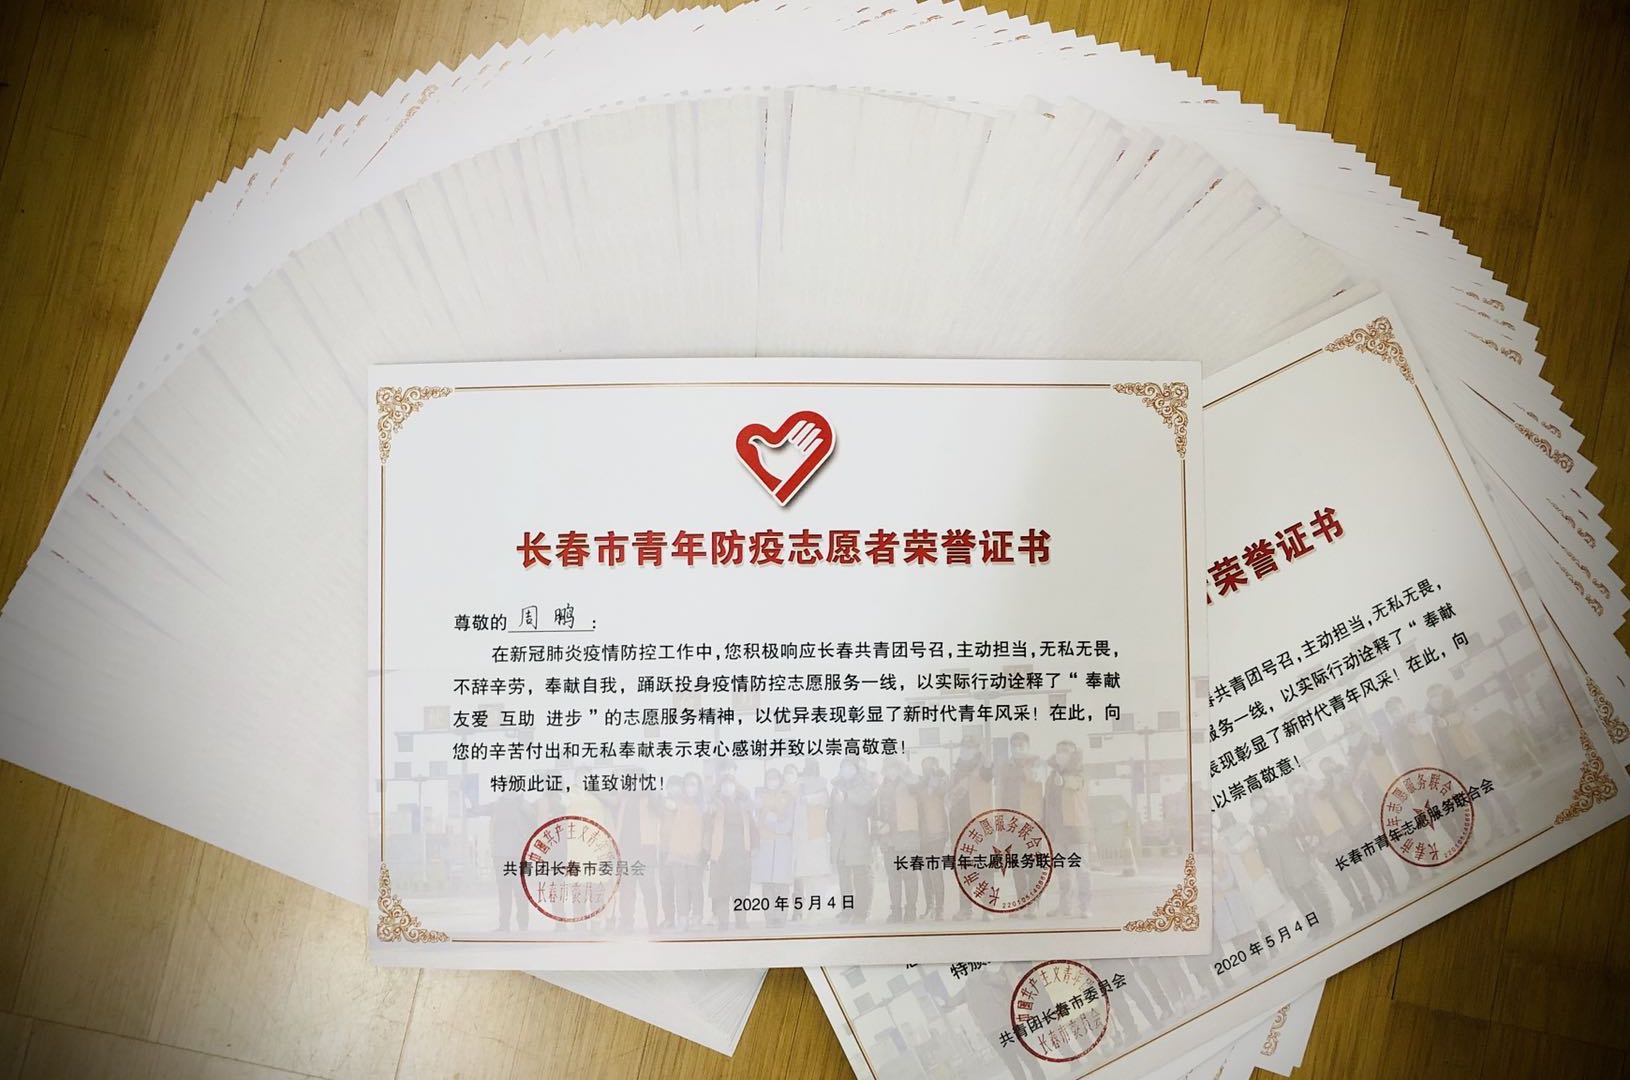 长春市青年防疫志愿者荣誉证书
尊敬的 周鹏：
在新冠肺炎疫情防控工作中，您积极响应长春共青团号召，主动担当，无私无畏，
不辞辛劳，奉献自我，踊跃投身疫情防控志愿服务一线，以实际行动诠释了“奉献
友爱 互助 进步”的志愿服务精神，以优异表现彰显了新时代青年风采！在此，向
您的辛苦付出和无私奉献表示衷心感谢并致以崇高敬意！
特颁此证，谨致谢忱！
共青团长春市委员会
长春市委员会
长春市青年志愿服务联合会
2020年5月4日
荣誉证书
共青团号召，主动担当，无私无畏，
服务一线，以实际行动诠释了“奉献
表现彰显了新时代青年风采！在此，向
以崇高敬意！
长春市青年志愿服务联合会
2020年5月4日
特颁
共青团长春市委员会
长春市委员会